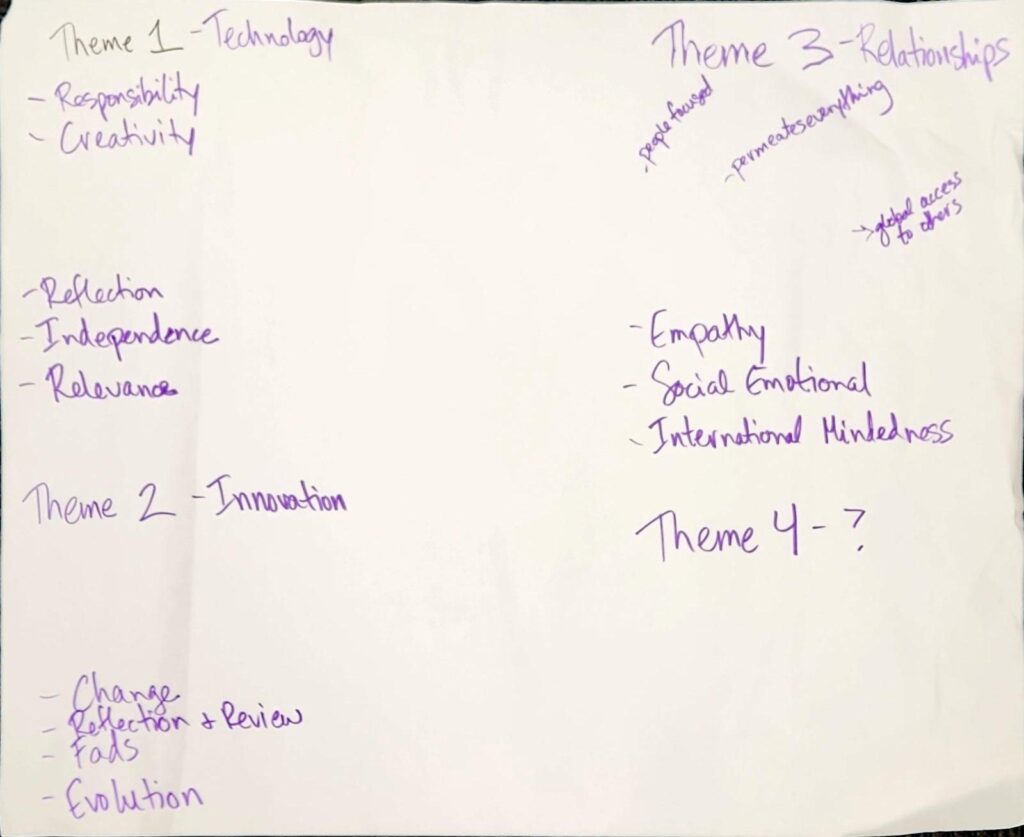 Theme 1 - Technology
- Responsibility
- Creativity
- Reflection
- Independence
- Relevance
Theme 2 - Innovation
- Change
- Reflection + Review
- Fads
- Evolution
Theme 3 - Relationships
- people focused
- permeates everything
→ global access
to others
- Empathy
- Social Emotional
- International Mindedness
Theme 4 - ?